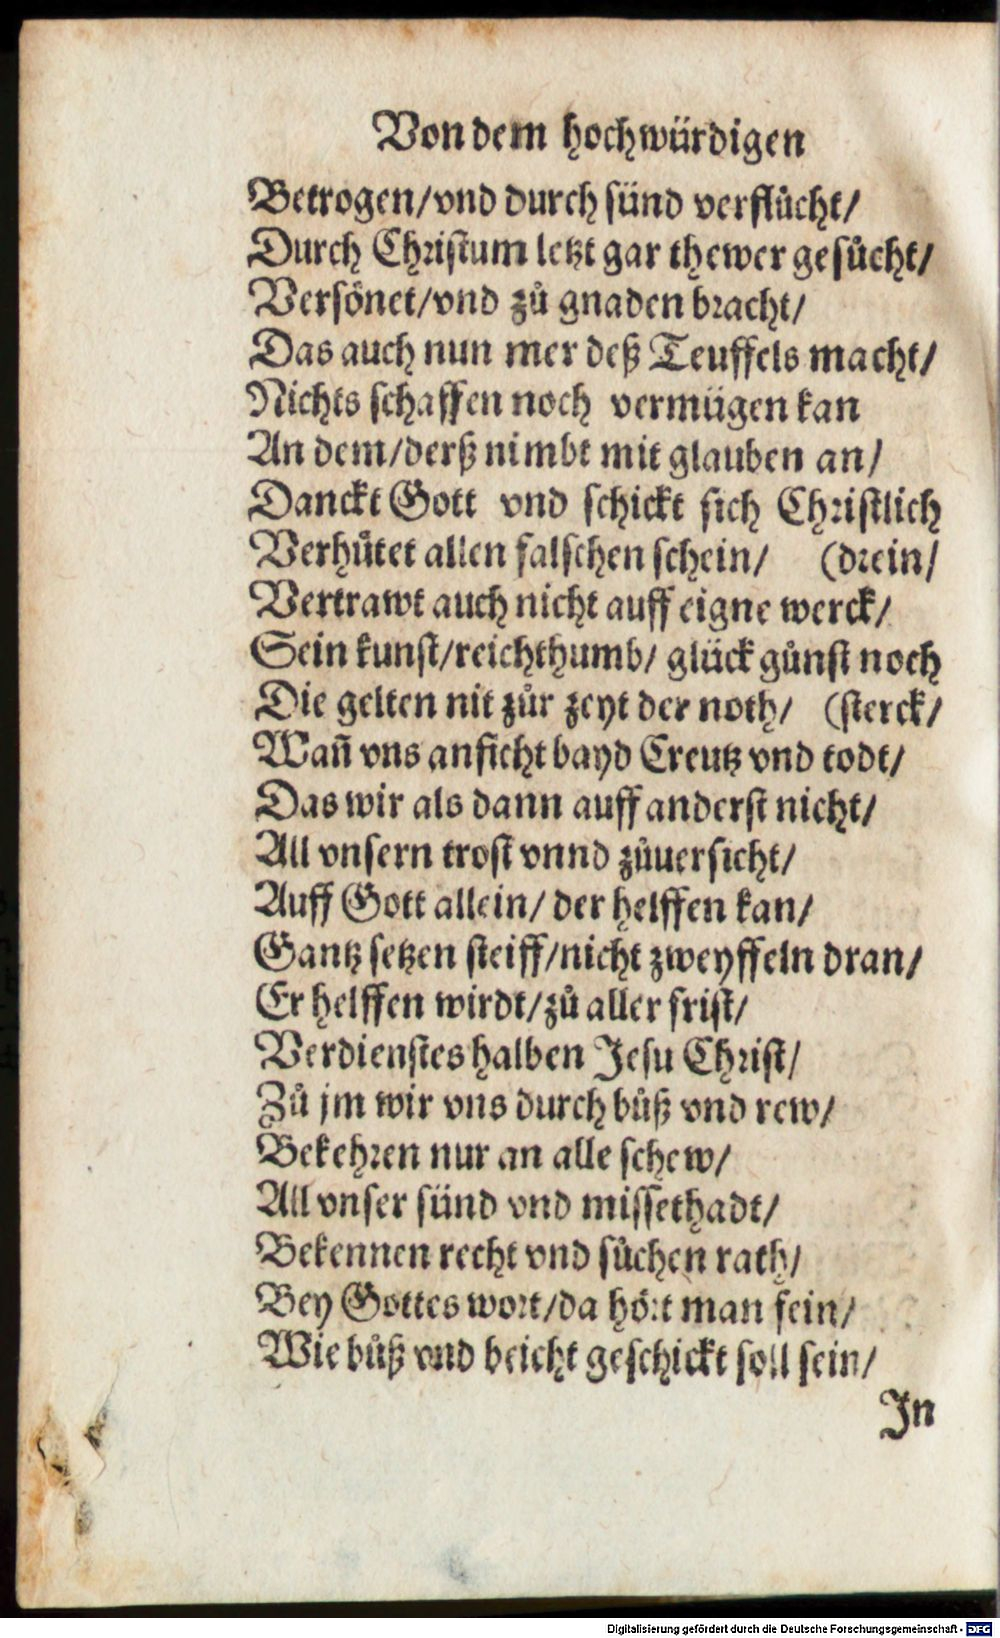 Von dem hochwürdigen
Betrogen/vnd durch sünd verflůcht/
Durch Christum letzt gar thewer gesůcht/
Versönet/vnd zů gnaden bracht/
Das auch nun mer deß Teuffels macht/
Nichts schaffen noch vermügen kan
An dem/derß nimbt mit glauben an/
Danckt Gott vnd schickt sich Christlich
Verhůtet allen falschen schein/ (drein/
Vertrawt auch nicht auff eigne werck/
Sein kunst/reichthumb/ glück gůnst noch
Die gelten nit zůr zeyt der noth/ (sterck/
Wañ vns anficht bayd Creutz vnd todt/
Das wir als dann auff anderst nicht/
All vnsern trost vnnd zůuersicht/
Auff Gott allein/ der helffen kan/
Gantz setzen steiff/nicht zweyffeln dran/
Er helffen wirdt/zů aller frist/
Verdienstes halben Jesu Christ/
Zů jm wir vns durch bůß vnd rew/
Bekehren nur an alle schew/
All vnser sünd vnd missethadt/
Bekennen recht vnd sůchen rath/
Bey Gottes wort/da hört man fein/
Wie bůß vnd beicht geschickt soll sein/
Jn
Digitalisierung gefördert durch die Deutsche Forschungsgemeinschaft - DFG